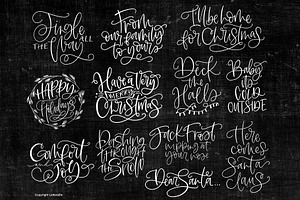 Jingle
ALL
the Way
From
our family
to yours
I'll be home
for Christmas
HAPPY
Holidays
Have a very
MERRY
Christmas
Deck
the
Halls
Baby
it's
COLD
OUTSIDE
Comfort
and
Joy
Dashing
through
the
Snow
Jack Frost
nipping at
your nose
Dear Santa...
Here
comes
Santa
Claus